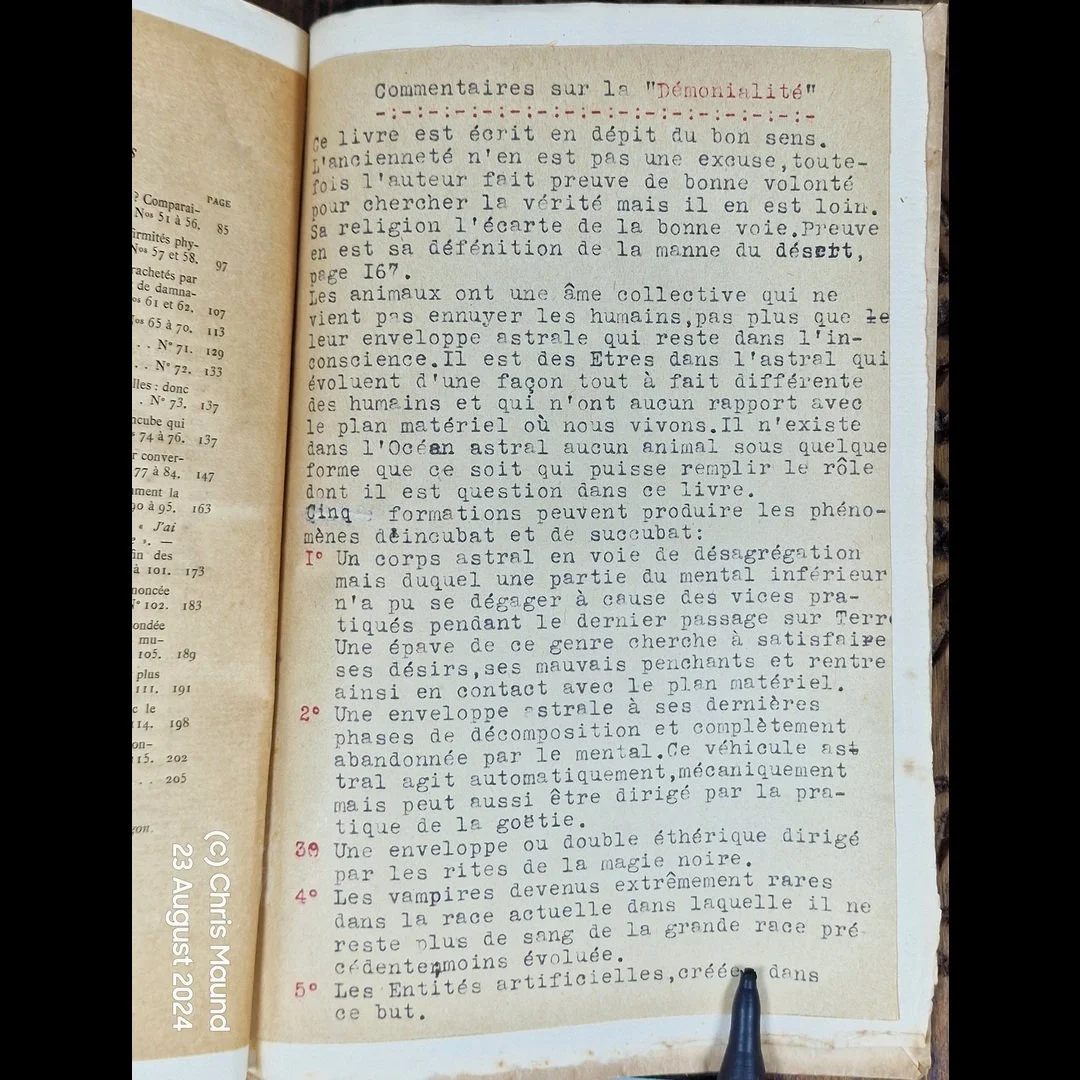 PAGE
? Comparai-
Nos 51 à 56. 85
irmités phy-
Nos 57 et 58. 97
rachetés par
de damna-
os 61 et 62. 107
os 65 à 70. 113
. . N° 71. 129
. . N° 72. 133
lles : donc
. N° 73. 137
ncube qui
74 à 76. 137
r conver-
77 à 84. 147
ment la
90 à 95. 163
« J'ai
? ». —
in des
à 101. 173
noncée
N° 102. 183
ondée
mu-
105. 189
plus
111. 191
c le
114. 198
on-
115. 202
. . 205
Commentaires sur la "Démonialité"
-:-:-:-:-:-:-:-:-:-:-:-:-:-:-:-:-
Ce livre est écrit en dépit du bon sens.
L'ancienneté n'en est pas une excuse,toute-
fois l'auteur fait preuve de bonne volonté
pour chercher la vérité mais il en est loin.
Sa religion l'écarte de la bonne voie.Preuve
en est sa défénition de la manne du désert,
page I67.
Les animaux ont une âme collective qui ne
vient pas ennuyer les humains,pas plus que le
leur enveloppe astrale qui reste dans l'in-
conscience.Il est des Etres dans l'astral qui
évoluent d'une façon tout à fait différente
des humains et qui n'ont aucun rapport avec
le plan matériel où nous vivons.Il n'existe
dans l'Océan astral aucun animal sous quelque
forme que ce soit qui puisse remplir le rôle
dont il est question dans ce livre.
Cinq formations peuvent produire les phéno-
mènes d'incubat et de succubat:
I° Un corps astral en voie de désagrégation
mais duquel une partie du mental inférieur
n'a pu se dégager à cause des vices pra-
tiqués pendant le dernier passage sur Terre
Une épave de ce genre cherche à satisfaire
ses désirs,ses mauvais penchants et rentre
ainsi en contact avec le plan matériel.
2° Une enveloppe astrale à ses dernières
phases de décomposition et complètement
abandonnée par le mental.Ce véhicule as-
tral agit automatiquement,mécaniquement
mais peut aussi être dirigé par la pra-
tique de la goëtie.
3° Une enveloppe ou double éthérique dirigé
par les rites de la magie noire.
4° Les vampires devenus extrêmement rares
dans la race actuelle dans laquelle il ne
reste plus de sang de la grande race pré-
cédente,moins évoluée.
5° Les Entités artificielles,créées dans
ce but.
(c) Chris Maund
23 August 2024